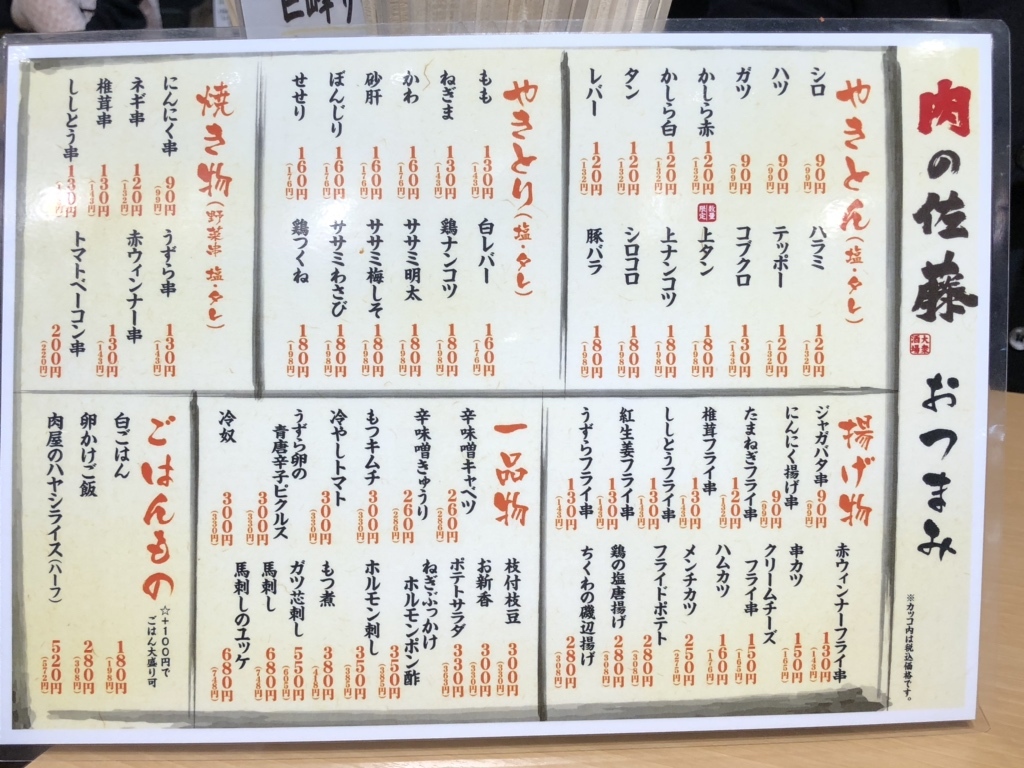 肉の佐藤
大衆酒場
おつまみ
※カッコ内は税込価格です。
やきとん(塩・タレ)
シロ 90円(99円)
ハツ 90円(99円)
ガツ 90円(99円)
かしら赤 120円(132円)
かしら白 120円(132円)
タン 120円(132円)
レバー 120円(132円)
ハラミ 120円(132円)
テッポー 120円(132円)
コブクロ 130円(143円)
数量限定
上タン 180円(198円)
上ナンコツ 180円(198円)
シロコロ 180円(198円)
豚バラ 180円(198円)
やきとり(塩・タレ)
もも 130円(143円)
ねぎま 130円(143円)
かわ 160円(176円)
砂肝 160円(176円)
ぼんじり 160円(176円)
せせり 160円(176円)
白レバー 160円(176円)
鶏ナンコツ 180円(198円)
ササミ明太 180円(198円)
ササミ梅しそ 180円(198円)
ササミわさび 180円(198円)
鶏つくね 180円(198円)
焼き物(野菜串 塩・タレ)
にんにく串 90円(99円)
ネギ串 120円(132円)
椎茸串 130円(143円)
ししとう串 130円(143円)
うずら串 130円(143円)
赤ウィンナー串 130円(143円)
トマトベーコン串 200円(220円)
揚げ物
ジャガバタ串 90円(99円)
にんにく揚げ串 90円(99円)
たまねぎフライ串 120円(132円)
椎茸フライ串 130円(143円)
ししとうフライ串 130円(143円)
紅生姜フライ串 130円(143円)
うずらフライ串 130円(143円)
赤ウィンナーフライ串 130円(143円)
串カツ 150円(165円)
クリームチーズ
フライ串 150円(165円)
ハムカツ 160円(176円)
メンチカツ 250円(275円)
フライドポテト 280円(308円)
鶏の塩唐揚げ 280円(308円)
ちくわの磯辺揚げ 280円(308円)
一品物
辛味噌キャベツ 260円(286円)
辛味噌きゅうり 260円(286円)
もつキムチ 300円(330円)
冷やしトマト 300円(330円)
うずら卵の
青唐辛子ピクルス 300円(330円)
冷奴 300円(330円)
枝付枝豆 300円(330円)
お新香 300円(330円)
ポテトサラダ 330円(363円)
ねぎぶっかけ
ホルモンポン酢 350円(385円)
ホルモン刺し 350円(385円)
もつ煮 380円(418円)
ガツ芯刺し 550円(605円)
馬刺し 680円(748円)
馬刺しのユッケ 680円(748円)
ごはんもの
☆+100円で
ごはん大盛り可
白ごはん 180円(198円)
卵かけご飯 280円(308円)
肉屋のハヤシライス(ハーフ) 520円(572円)